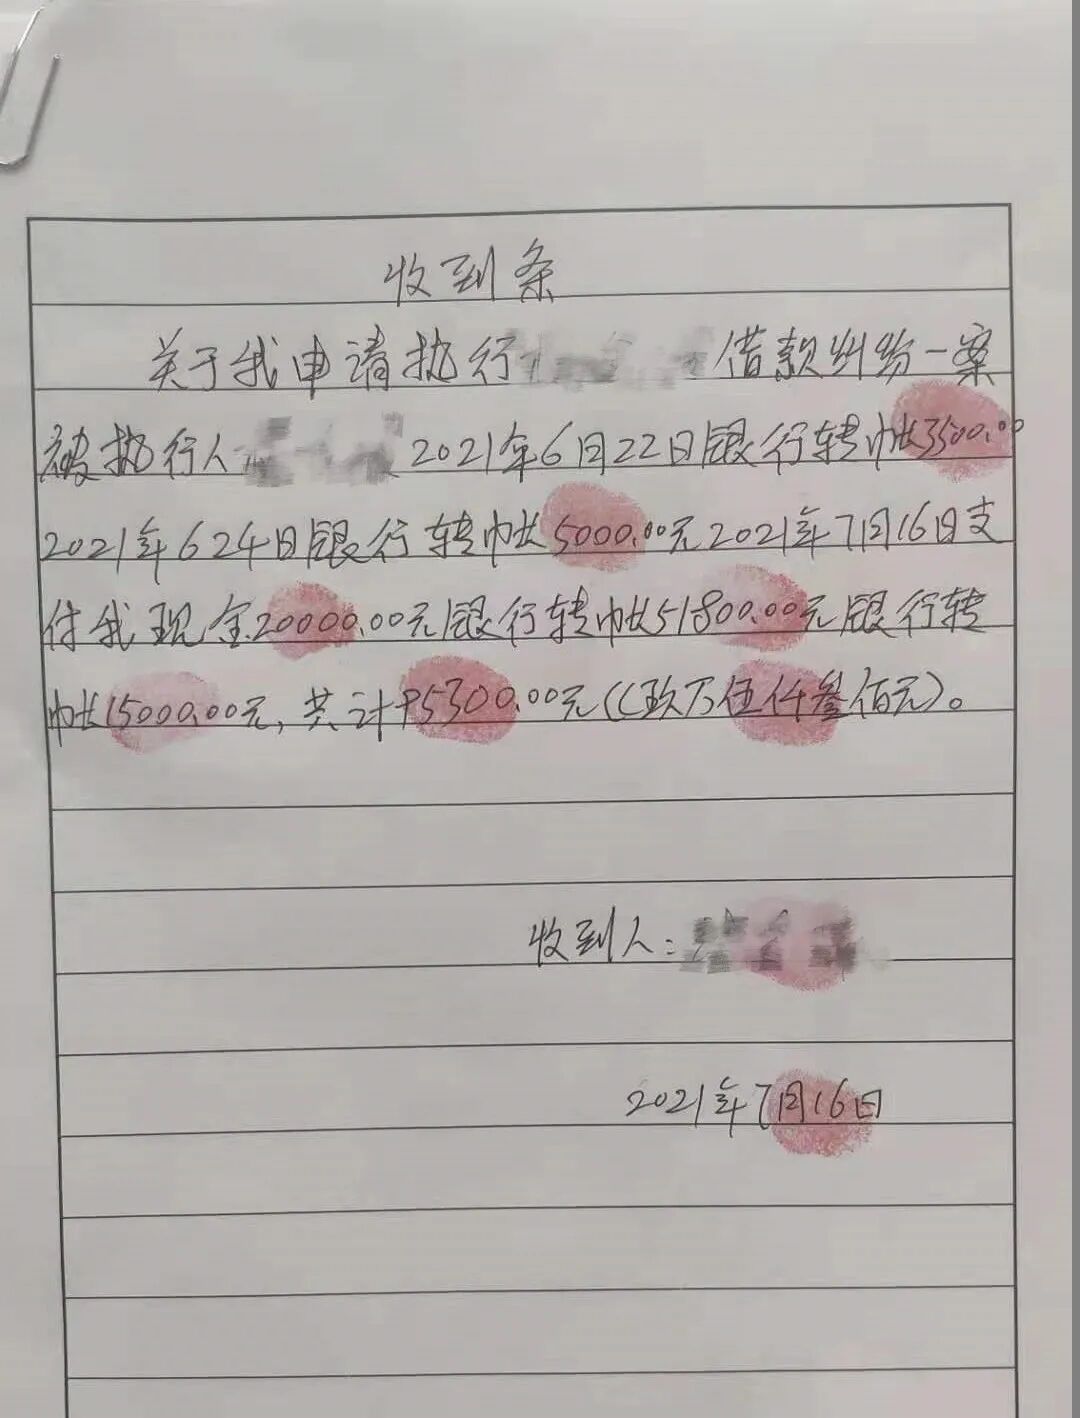 收到条
关于我申请执行 借款纠纷一案
被执行人 2021年6月22日银行转帐3500.00
2021年624日银行转帐5000.00元2021年7月16日支
付我现金20000.00元银行转帐51800.00元银行转
帐15000.00元,共计95300.00元(（玖万伍仟叁佰元)。
收到人:
2021年7月16日